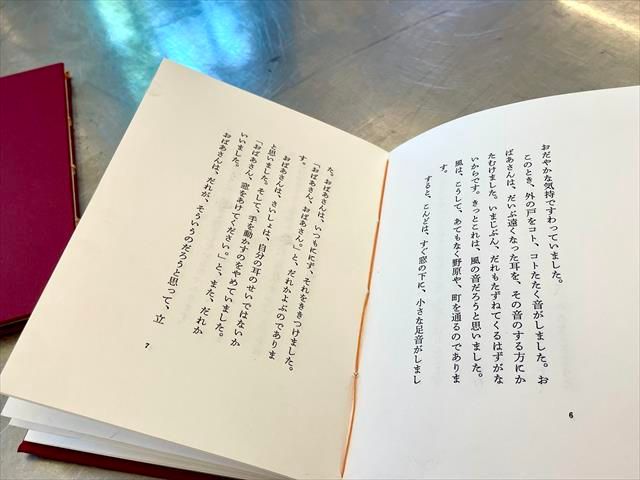 おだやかな気持ですわっていました。
このとき、外の戸をコト、コトたたく音がしました。お
ばあさんは、だいぶ遠くなった耳を、その音のする方にか
たむけました。いまじぶん、だれもたずねてくるはずがな
いからです。きっとこれは、風の音だろうと思いました。
風は、こうして、あてもなく野原や、町を通るのでありま
す。
すると、こんどは、すぐ窓の下に、小さな足音がしまし
6
た。おばあさんは、いつもににず、それをききつけました。
「おばあさん、おばあさん。」と、だれかよぶのでありま
す。
おばあさんは、さいしょは、自分の耳のせいではないか
と思いました。そして、手を動かすのをやめていました。
「おばあさん、窓をあけてください。」と、また、だれか
いいました。
おばあさんは、だれが、そういうのだろうと思って、立
7